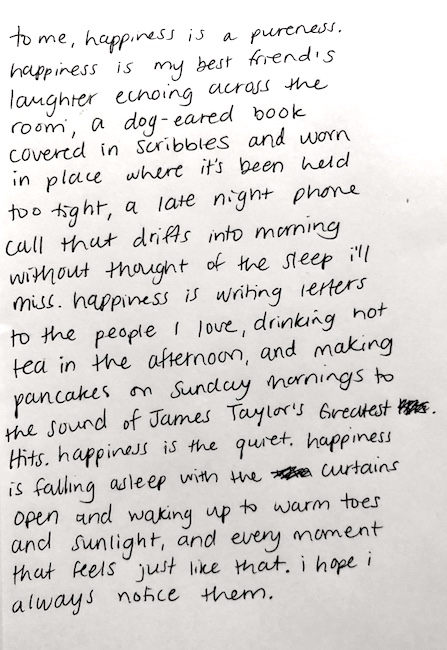 to me, happiness is a pureness.
happiness is my best friend's
laughter echoing across the
room, a dog-eared book
covered in scribbles and worn
in place where it's been held
too tight, a late night phone
call that drifts into morning
without thought of the sleep i'll
miss. happiness is writing letters
to the people I love, drinking hot
tea in the afternoon, and making
pancakes on Sunday mornings to
the sound of James Taylor's Greatest .
Hits. happiness is the quiet. happiness
is falling asleep with the curtains
open and waking up to warm toes
and sunlight, and every moment
that feels just like that. i hope i
always notice them.